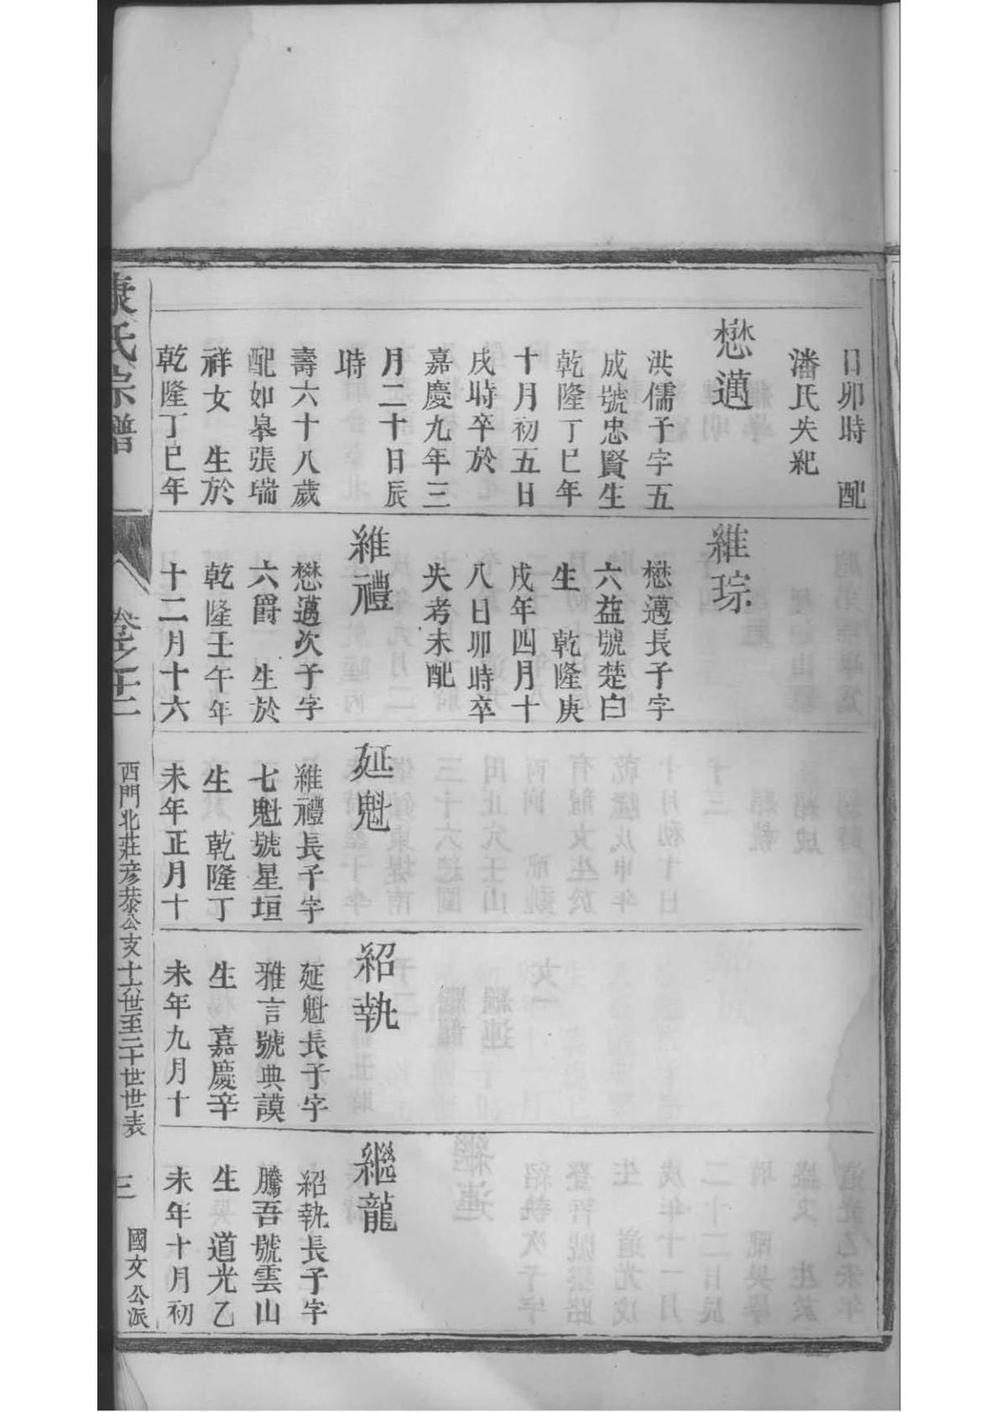 日卯時 配
潘氏失紀
懋邁
洪儒子字五
成號忠賢生
乾隆丁巳年
十月初五日
戌時卒於
嘉慶九年三
月二十日辰
時
壽六十八歲
配如皋張瑞
祥女 生於
乾隆丁巳年
維琮
懋邁長子字
六益號楚白
生 乾隆庚
戌年四月十
八日卯時卒
失考未配
維禮
懋邁次子字
六爵 生於
乾隆壬午年
十二月十六
延魁
維禮長子字
七魁號星垣
生 乾隆丁
未年正月十
紹執
延魁長子字
雅言號典謨
生 嘉慶辛
未年九月十
繼龍
紹執長子字
騰吾號雲山
生 道光乙
未年十月初
康氏宗譜
卷之十二
西門北莊彥恭公支十六世至二十世世表
三
國文公派